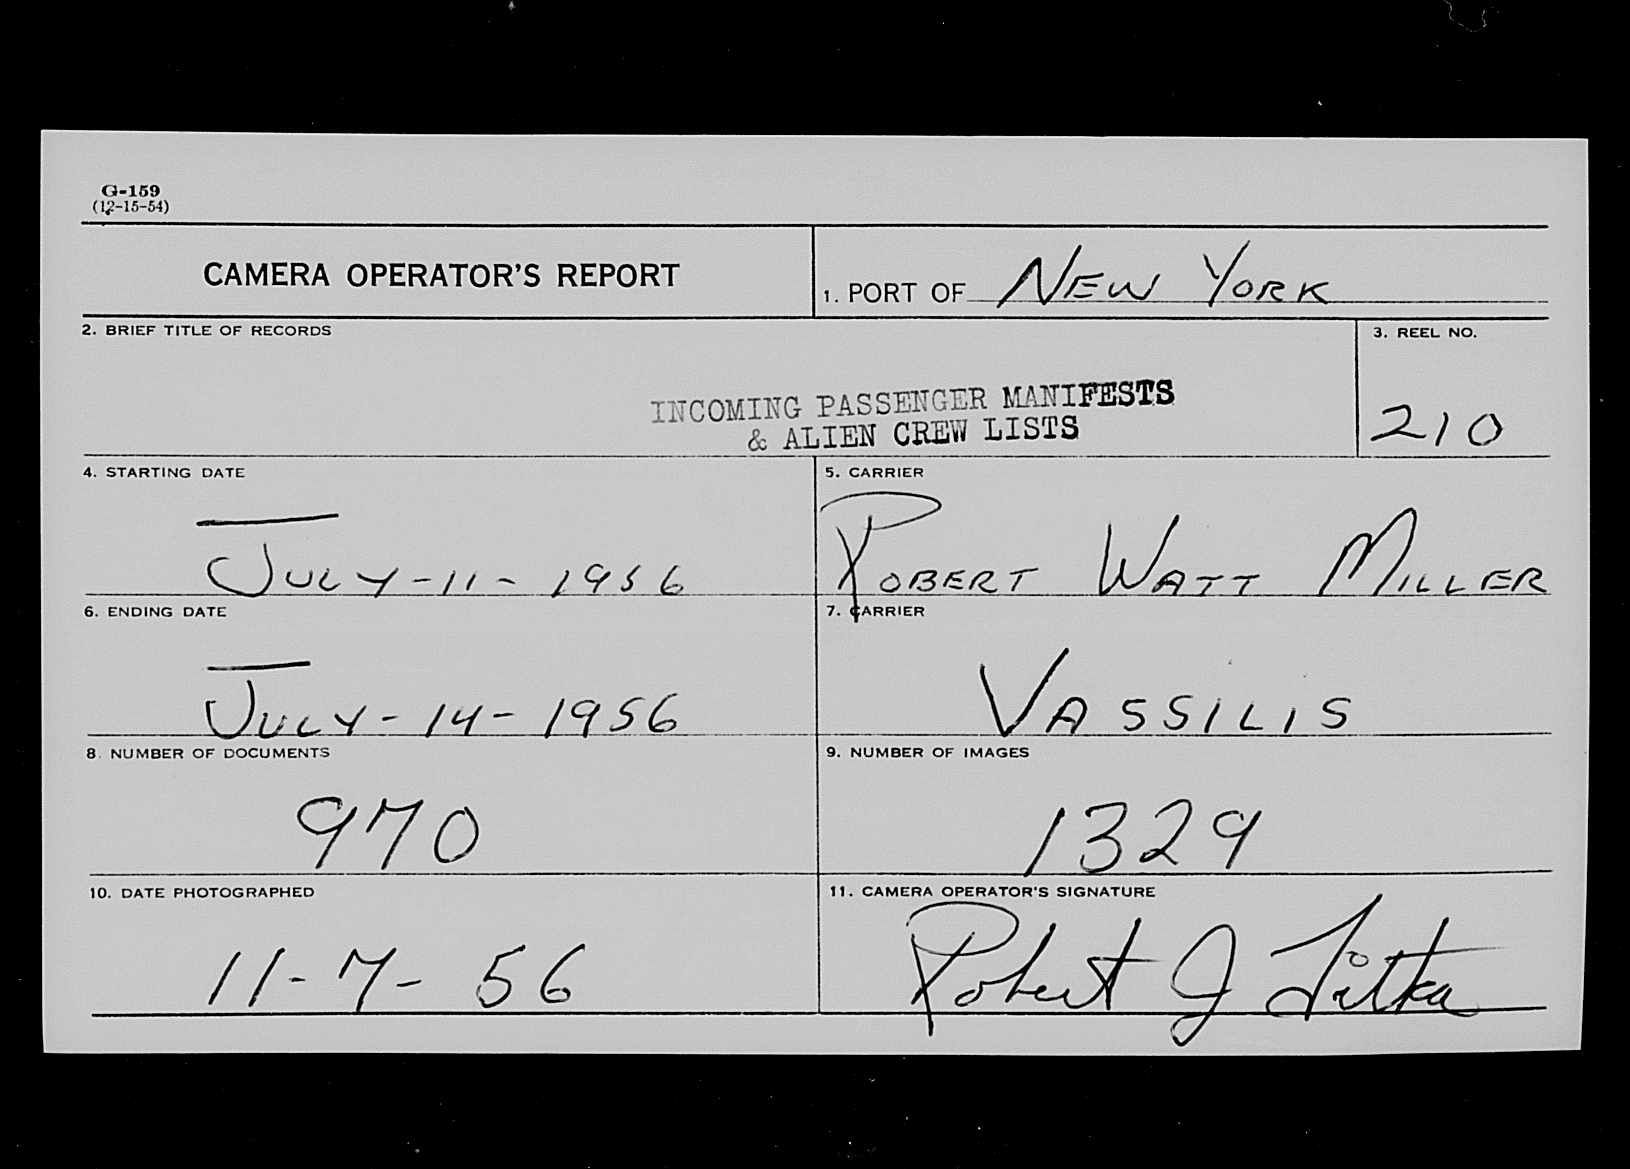 G-159
(12-15-54)
CAMERA OPERATOR'S REPORT
1. PORT OF NEW YORK
2. BRIEF TITLE OF RECORDS
INCOMING PASSENGER MANIFESTS
& ALIEN CREW LISTS
3. REEL NO.
210
4. STARTING DATE
JULY-11-1956
5. CARRIER
ROBERT WATT MILLER
6. ENDING DATE
JULY-14-1956
7. CARRIER
VASSILIS
8. NUMBER OF DOCUMENTS
970
9. NUMBER OF IMAGES
1329
10. DATE PHOTOGRAPHED
11-7-56
11. CAMERA OPERATOR'S SIGNATURE
Robert J